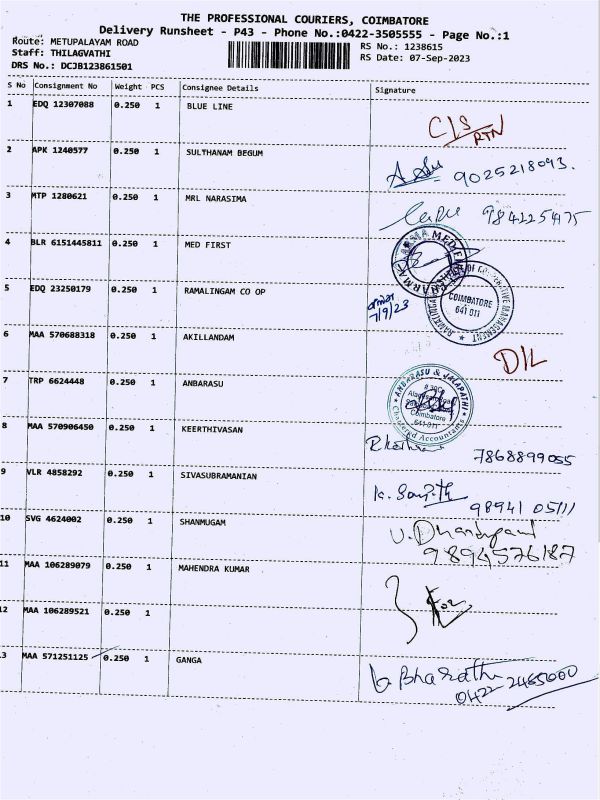 THE PROFESSIONAL COURIERS, COIMBATORE
Delivery Runsheet - P43 - Phone No.:0422-3505555 - Page No.:1
Route: METUPALAYAM ROAD
Staff: THILAGVATHI
DRS No.: DCJB123861501
RS No.: 1238615
RS Date: 07-Sep-2023
S No Consignment No Weight PCS Consignee Details Signature
1 EDQ 12307088 0.250 1 BLUE LINE
C/S
RTN
2 APK 1240577 0.250 1 SULTHANAM BEGUM
9025218093.
3 MTP 1280621 0.250 1 MRL NARASIMA
984225475
4 BLR 6151445811 0.250 1 MED FIRST
5 EDQ 23250179 0.250 1 RAMALINGAM CO OP
7/9/23
COIMBATORE
641 011
6 MAA 570688318 0.250 1 AKILLANDAM
D/L
7 TRP 6624448 0.250 1 ANBARASU
ANBARASU & JALAPATHI
Coimbatore
641 011
Chartered Accountants
8 MAA 570906450 0.250 1 KEERTHIVASAN
7868899055
9 VLR 4858292 0.250 1 SIVASUBRAMANIAN
98941 05111
10 SVG 4624002 0.250 1 SHANMUGAM
9894576187
11 MAA 106289079 0.250 1 MAHENDRA KUMAR
12 MAA 106289521 0.250 1
3 MAA 571251125 0.250 1 GANGA
G. Bharathi
0422 2465000